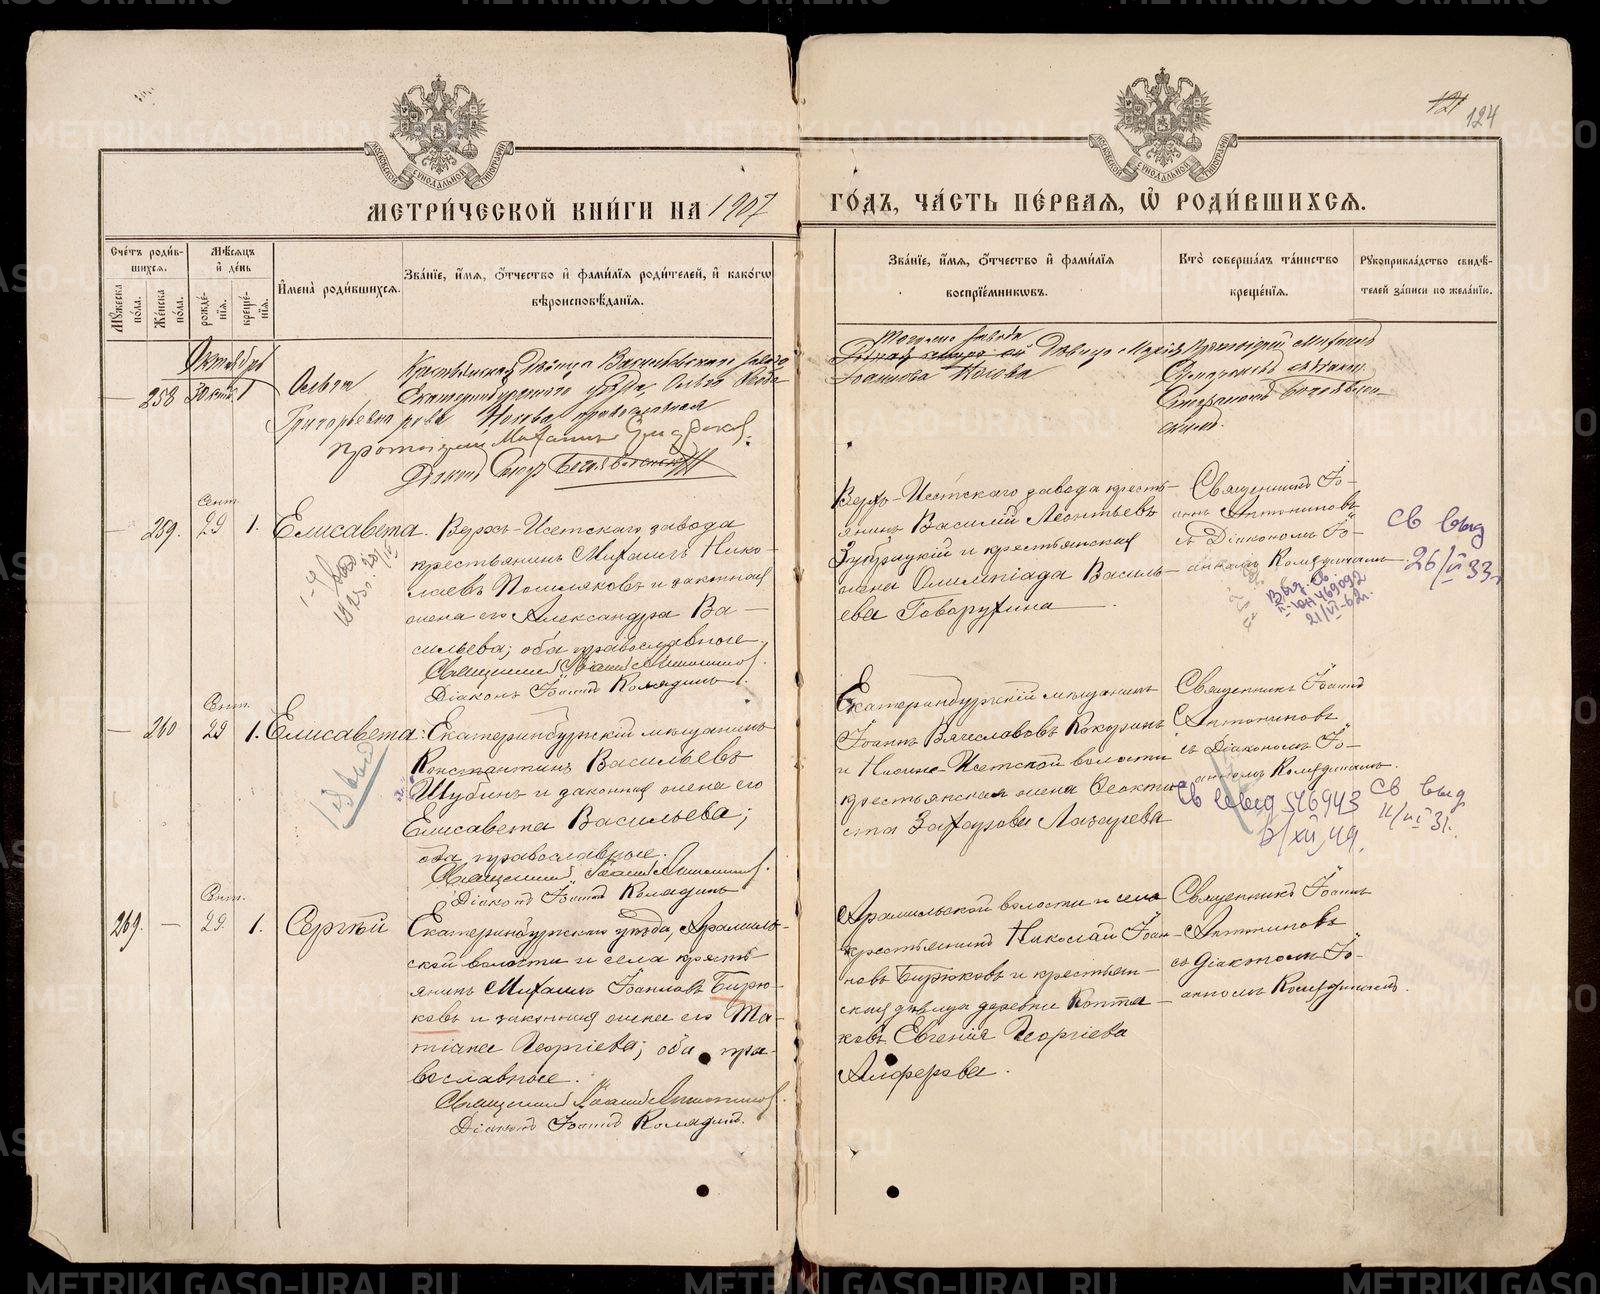 121
124
МОСКОВСКОЙ СѴНОДАЛЬНОЙ ТИПОГРАФІИ
МОСКОВСКОЙ СѴНОДАЛЬНОЙ ТИПОГРАФІИ
МЕТРИ́ЧЕСКОЙ КНИ́ГИ НА 1907
ГО́ДЪ, ЧА́СТЬ ПЕ́РВАЯ, Ѽ РОДИ́ВШИХСЯ.
Сче́тъ роди́в-
шихся.
Мꙋ́жеска по́ла.
Же́нска по́ла.
Мѣ́сяцъ и де́нь
рожде́-
нїя.
креще́-
нїя.
И́мена̀ роди́вшихся.
Зва́нїе, и́мя, ѻ҆́тчество и҆ фами́лїя роди́телей, и҆ како́гѡ
вѣроисповѣ́данїя.
Зва́нїе, и́мя, ѻ҆́тчество и҆ фами́лїя
воспрїе́мникѡвъ.
Кто̀ соверша́лъ та́инство
креще́нїя.
Рꙋкоприкла́дство свидѣ́-
телей за́писи по жела́нїю.
Октябрь
258
1
Ольга
Григорьевна
Крестьянская дѣвица
Екатеринбургскаго уѣзда, Ольга
Носова православная
Протоіерей Михаилъ
того же завода
дѣвица Марія
Іоаннова Носова
Протоіерей Михаилъ
— 259. Сент. 29 1. Елисавета.
Верхъ-Исетскаго завода
крестьянинъ Михаилъ Нико-
лаевъ Пошляковъ и законная
жена его Александра Ва-
сильева; оба православные
Священникъ Іоаннъ Антониновъ.
Діаконъ Іоаннъ Колядинъ.
Верхъ-Исетскаго завода кресть-
янинъ Василій Леонтьевъ
Зубрицкій и крестьянская
жена Олимпіада Василь-
ева Говорухина
Священникъ Іо-
аннъ Антониновъ
съ Діакономъ Іо-
анномъ Колядинымъ
св выд
26/VI 33г
Выд. св
469092
21/VI-62г.
— 260 Сент. 29 1. Елисавета:
Екатеринбургскій мѣщанинъ
Константинъ Васильевъ
Шубинъ и законная жена его
Елисавета Васильева;
оба православные.
Священникъ Іоаннъ Антониновъ.
Діаконъ Іоаннъ Колядинъ
Екатеринбургскій мѣщанинъ
Іоаннъ Вячеславовъ Кокуринъ
и Нижне-Исетской волости
крестьянская жена Ѳеокти-
ста Захарова Лазарева
Священникъ Іоаннъ
Антониновъ
съ Діакономъ Іо-
анномъ Колядинымъ.
Св выд 546943
2/XII 49.
св выд
11/VI 31.
269. — Сент. 29. 1. Сергѣй
Екатеринбургскаго уѣзда, Арамиль-
ской волости и села кресть-
янинъ Михаилъ Іоанновъ Бирю-
ковъ и законная жена его Та-
тіана Георгіева; оба пра-
вославные.
Священникъ Іоаннъ Антониновъ.
Діаконъ Іоаннъ Колядинъ.
Арамильской волости и села
крестьянинъ Николай Іоан-
новъ Бирюковъ и крестьян-
ская дѣвица деревни Копта-
ковъ Евгенія Георгіева
Алферова.
Священникъ Іоаннъ
Антониновъ
съ Діакономъ Іо-
анномъ Колядинымъ.
METRIKI.GASO-URAL.RU